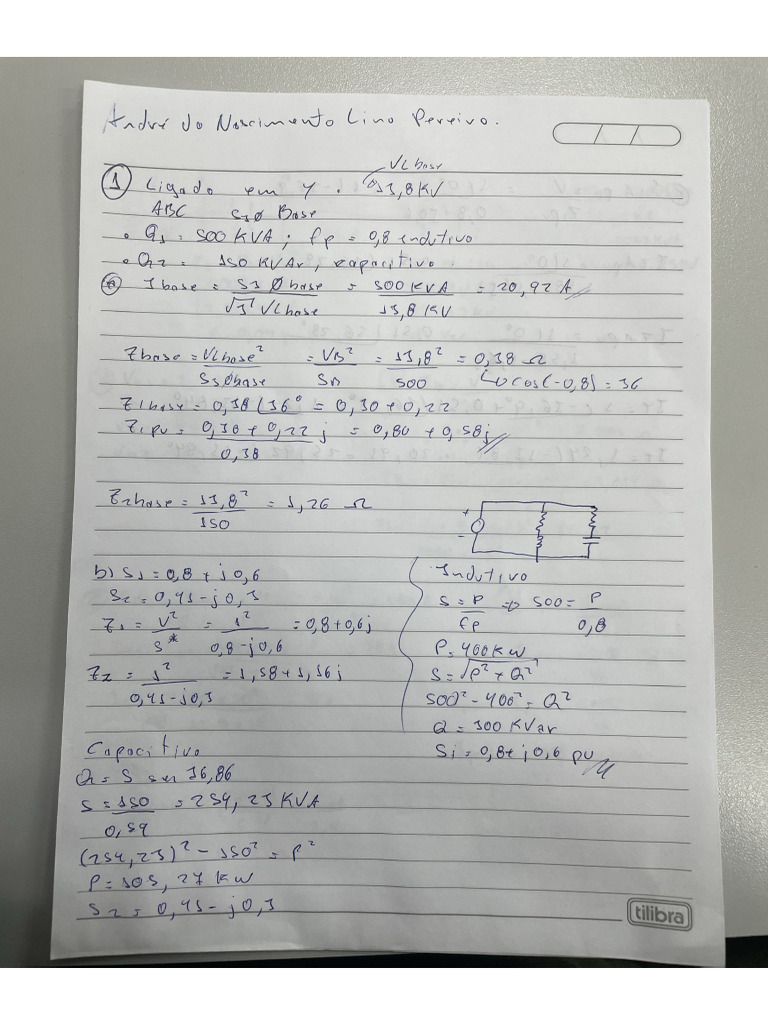 André do Nascimento Lino Pereira.
VL base
1 Ligado em Y. 13,8 KV
ABC S3Ø Base
• Q1 = 500 KVA; fp = 0,8 indutivo
• Q2 = 150 KVAr, capacitivo.
a) I base = S3Øbase / √3 VLbase = 500 KVA / 13,8 KV = 20,92 A
Zbase = VLbase² / S3Øbase = VB² / SB = 13,8² / 500 = 0,38 Ω
↳ cos(-0,8) = 36
Z1base = 0,38 ∠36° = 0,30 + 0,22
Z1pu = 0,30 + 0,22 j / 0,38 = 0,80 + 0,58j
Z2base = 13,8² / 150 = 1,26 Ω
+
-
b) S1 = 0,8 + j0,6
S2 = 0,41 - j0,3
Z1 = V² / S* = 1² / 0,8 - j0,6 = 0,8 + 0,6j
Z2 = 1² / 0,41 - j0,3 = 1,58 + 1,16j
Indutivo
S = P / fp => 500 = P / 0,8
P = 400 KW
S = √P² + Q²
500² - 400² = Q²
Q = 300 KVar
S1 = 0,8 + j0,6 pu
Capacitivo
Q = S sen 36,86
S = 150 / 0,59 = 254,23 KVA
(254,23)² - 150² = P²
P = 205,27 KW
S2 = 0,41 - j0,3
tilibra